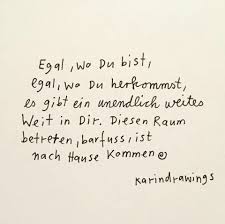 Egal, wo Du bist,
egal, wo Du herkommst,
es gibt ein unendlich weites
Weit in Dir. Diesen Raum
betreten, barfuss, ist
nach Hause Kommen
karindrawings